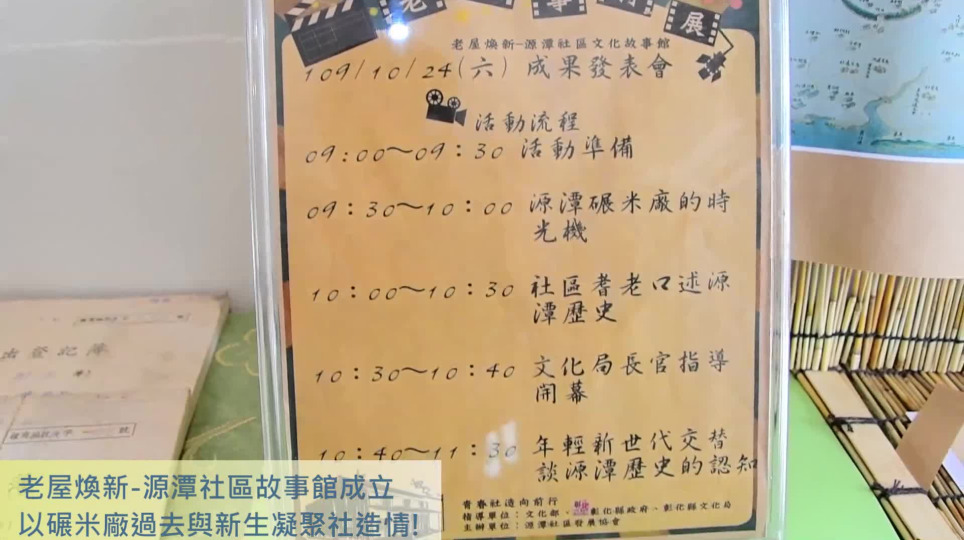 老
事
展
老屋煥新-源潭社區文化故事館
109/10/24(六) 成果發表會
活動流程
09:00～09:30 活動準備
09:30～10:00 源潭碾米廠的時
光機
10:00～10:30 社區耆老口述源
潭歷史
10:30～10:40 文化局長官指導
開幕
10:40～11:30 年輕新世代交替
談源潭歷史的認知
青春社造向前行
指導單位：文化部、彰化縣政府、彰化縣文化局
主辦單位：源潭社區發展協會
登記簿
老屋煥新-源潭社區故事館成立
以碾米廠過去與新生凝聚社造情!